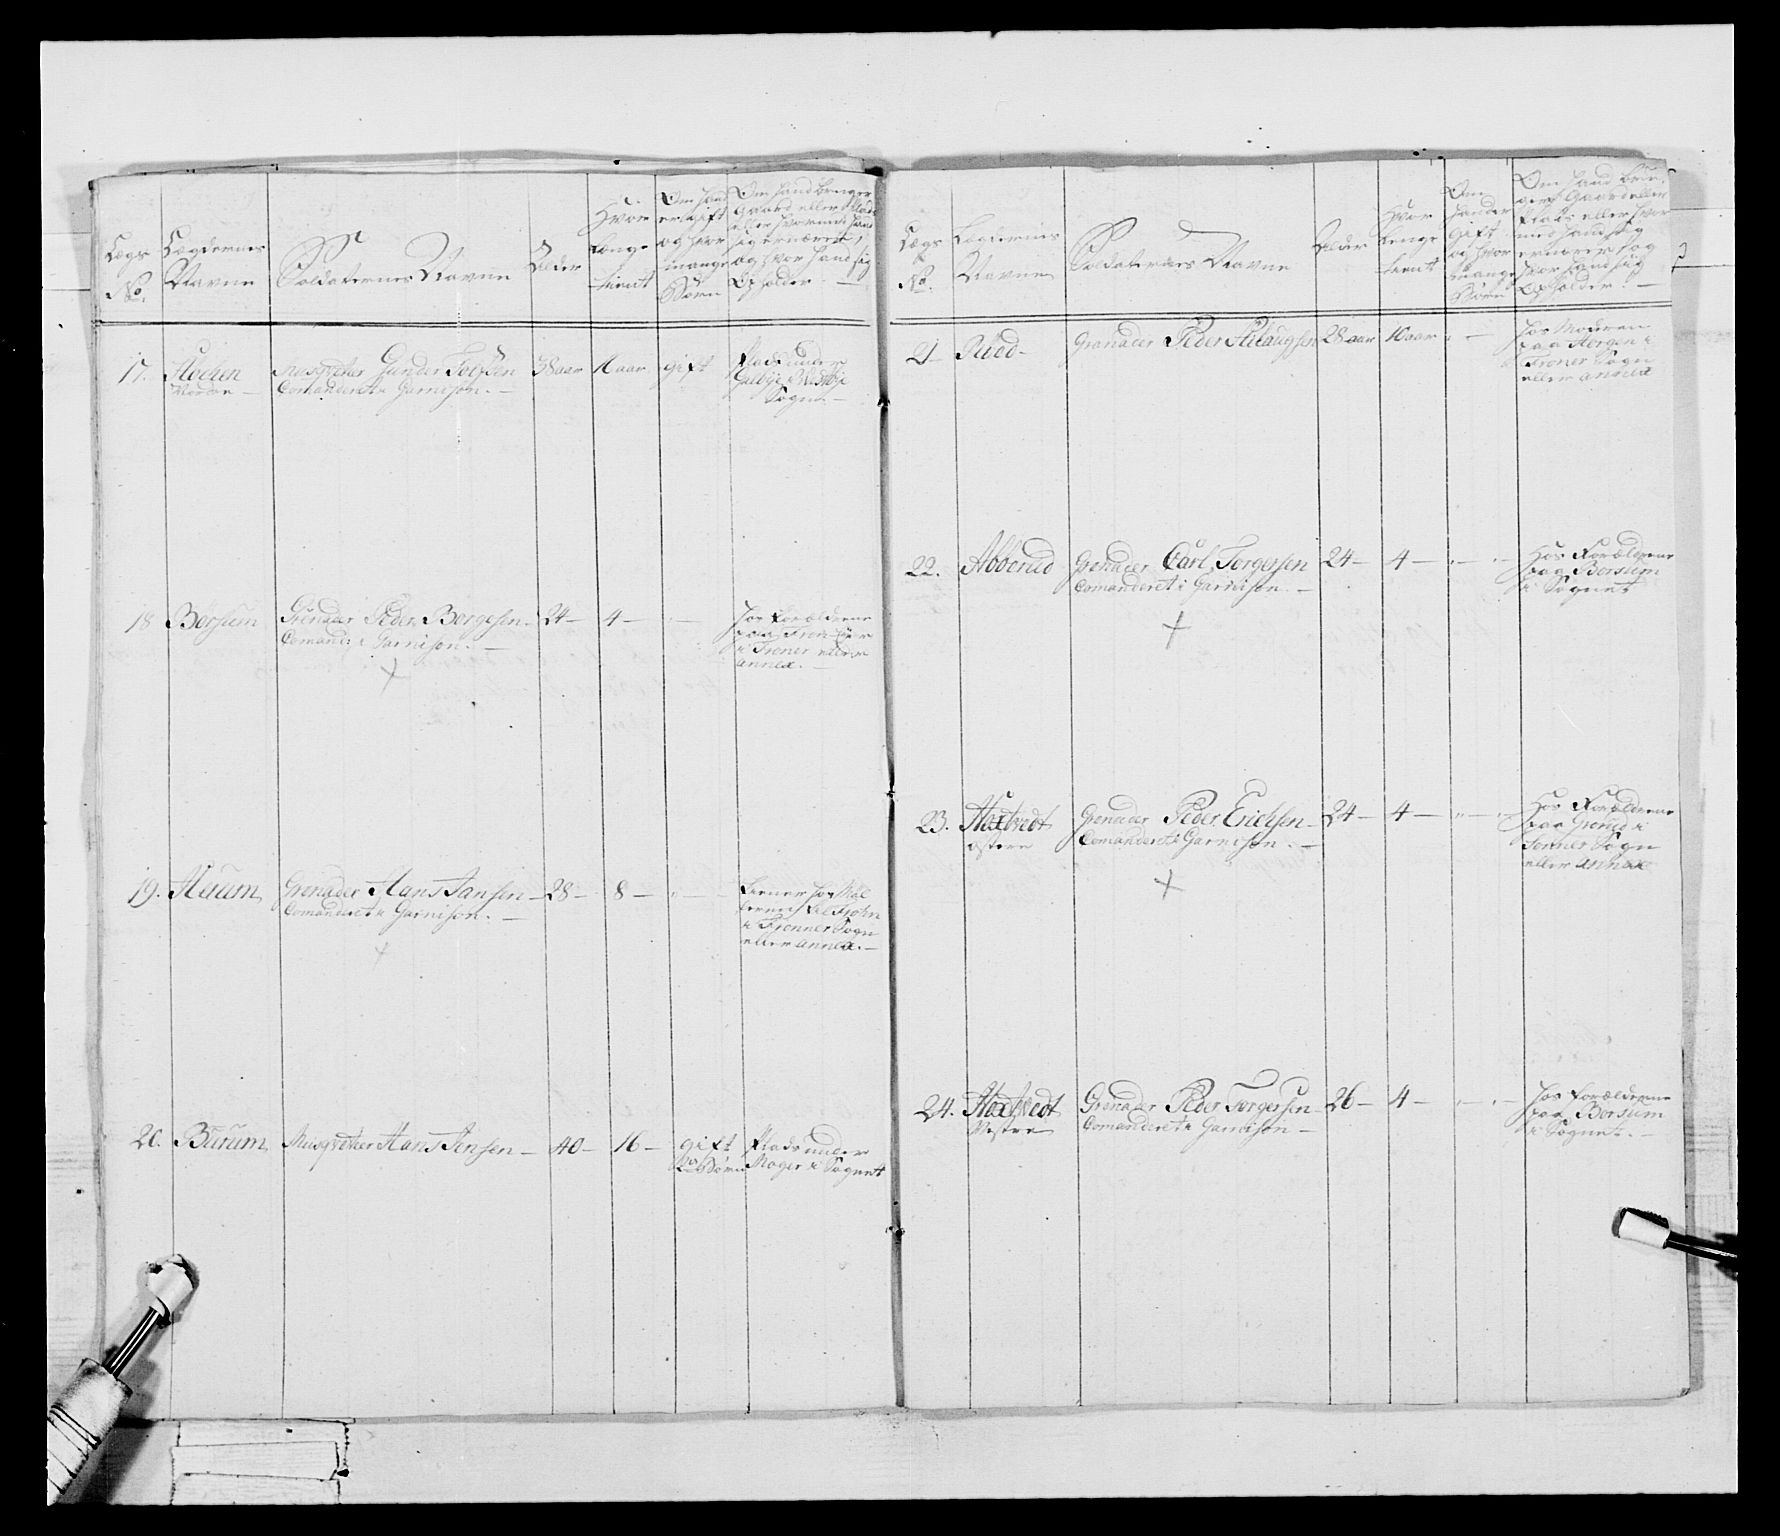 Lægs
No.
Lægdernes
Navne
Soldaternes Navne
Alder
Hvor
længe
tient
Om hand
er gift
og hvor
mange
Børn
Om hand bruger
Gaard eller Plads
eller hvormed hand
sig ernærer,
og hvor hand sig
Opholder. —
17.
Nordre —
Musqveter Gunder
Comanderet i Garnison. —
38 aar
gift
Plads under
Sogn. —
18
Børsum
Grenader Peder Børgesen —
Comand: i Garnison. —
24 —
4 —
hos Forældrene
paa
i Froner eller
annex. —
19.
Grenader Hans Jansen —
Comanderet i Garnison. —
28 —
8 —
tiener hos
i Froner Sogn
eller annex. —
20.
Burum
Musqveter Hans Jensen —
40 —
16 —
gift
Børn
Plads under
Moger i Sognet
Lægs
No.
Lægdernes
Navne
Soldaternes Navne
Alder
Hvor
lenge
tient
Om
hand er
gift
og hvor
mange
Børn
Om hand bru-
ger Gaard eller
Plads eller hvor
med hand sig
ernærer og
hvor hand sig
Opholder. —
21
Grenader Peder
28 aar
10 aar
hos Moderen
paa
Froner Sogn
eller annex
22.
Abberud
Grenader Carl Torgersen
Comanderet i Garnison. —
24 —
4 —
Hos Forældrene
paa Borsum
i Sognet
23.
østere
Grenader Peder Erichsen —
Comanderet i Garnison. —
24 —
4 —
Hos Forældrene
paa
Froner Sogn
eller annex
24.
Vestre
Grenader Peder Torgersen —
Comanderet i Garnison —
26 —
4 —
hos Forældrene
paa Borsum
i Sognet. —